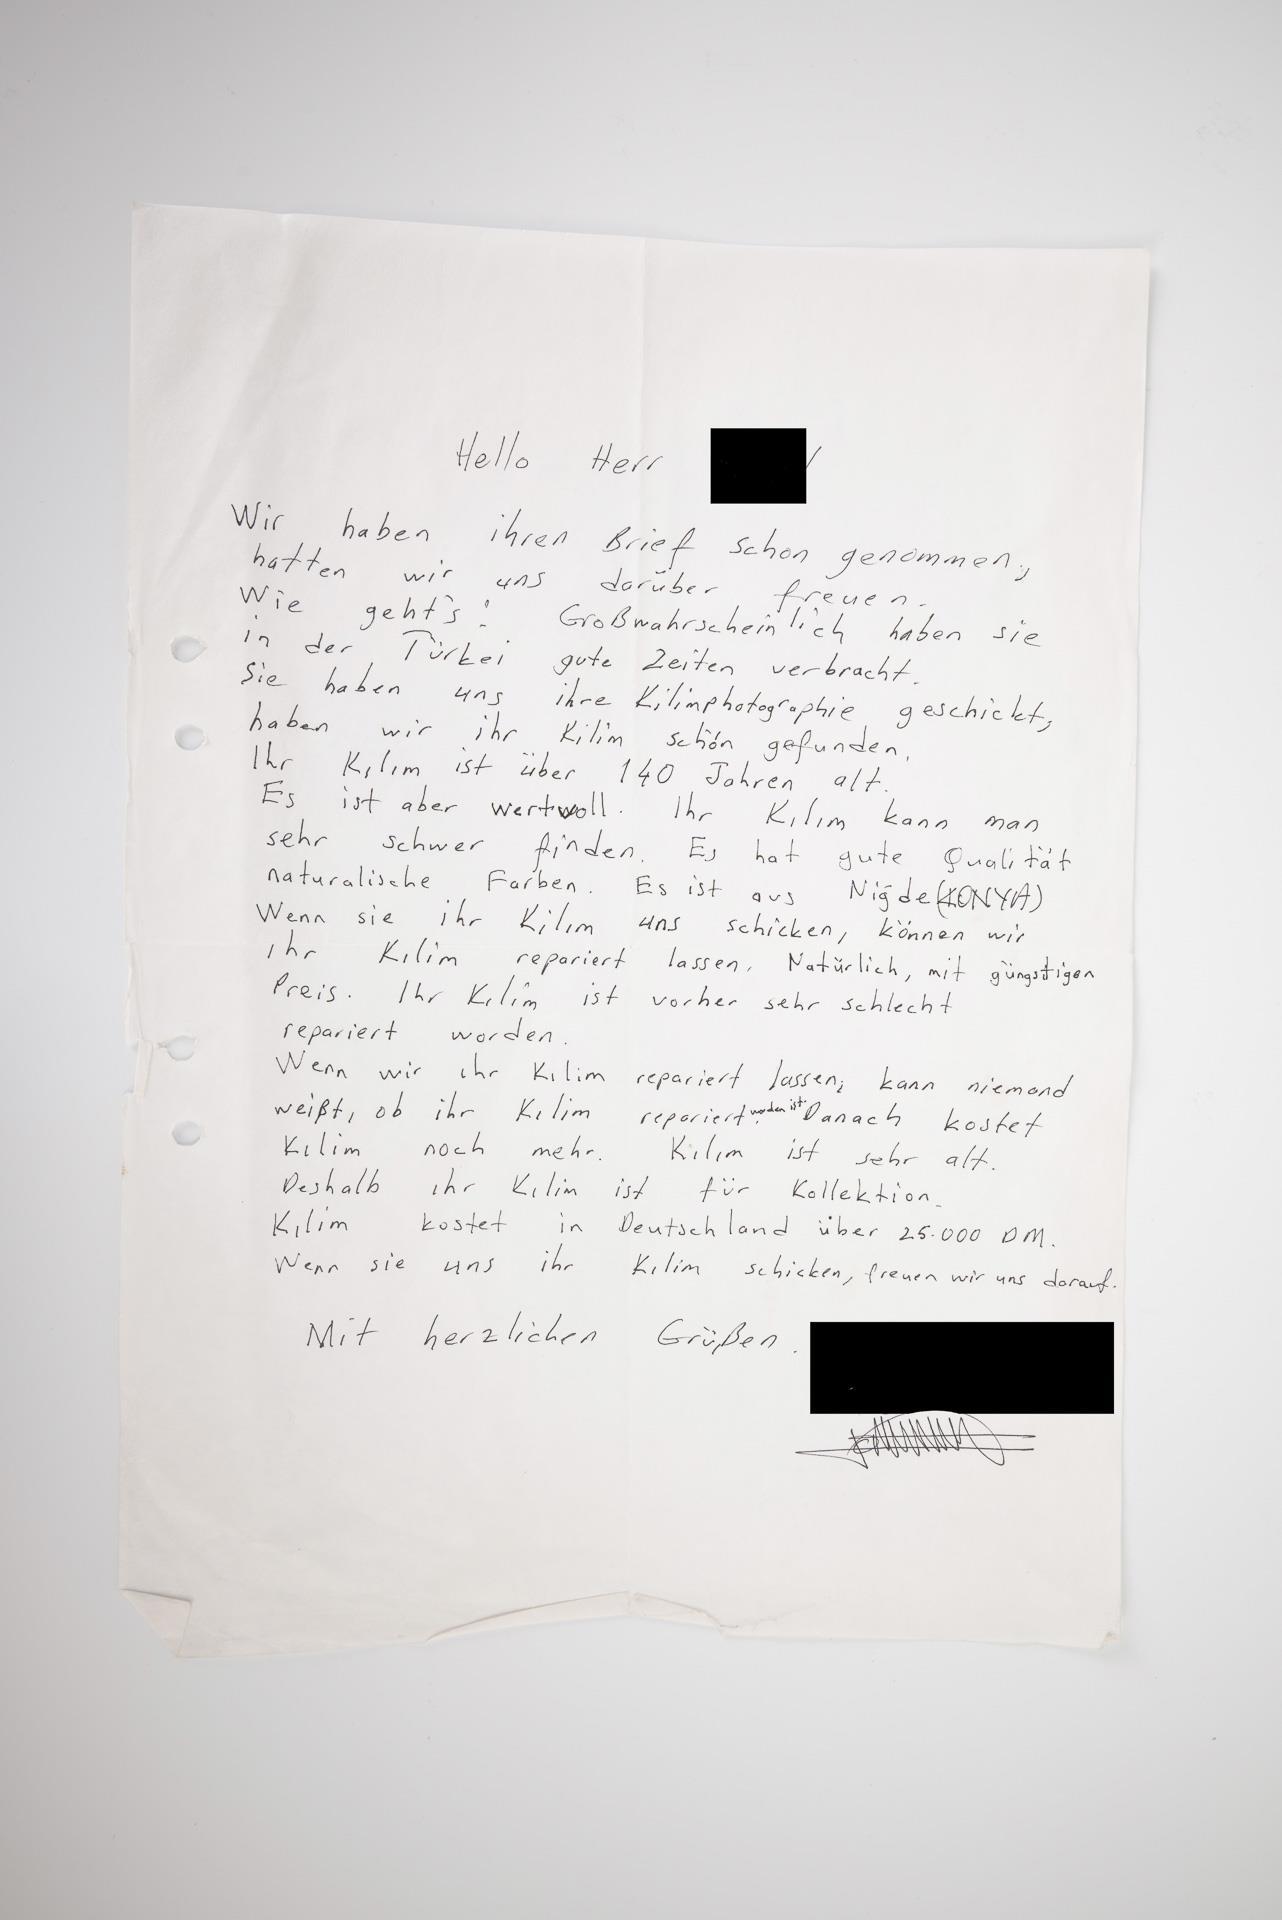 Hello Herr
Wir haben ihren Brief schon genommen,
hatten wir uns darüber freuen.
Wie geht's! Großwahrscheinlich haben sie
in der Türkei gute Zeiten verbracht.
Sie haben uns ihre Kilimphotographie geschickt,
haben wir ihr Kilim schön gefunden.
Ihr Kılım ist über 140 Jahren alt.
Es ist aber wertwoll. Ihr Kılım kann man
sehr schwer finden. Es hat gute Qualität
naturalische Farben. Es ist aus Niğde(KONYA)
Wenn sie ihr Kılım uns schicken, können wir
ihr Kılim repariert lassen. Natürlich, mit güngstigen
Preis. Ihr Kılim ist vorher sehr schlecht
repariert worden.
Wenn wir ıhr Kılim repariert lassen, kann niemand
weißt, ob ihr Kılim repariert worden ist. Danach kostet
Kılim noch mehr. Kılım ist sehr alt.
Deshalb ıhr Kılim ist für Kollektion.
Kılim kostet in Deutschland über 25.000 DM.
Wenn sie uns ihr Kılim schicken, freuen wir uns darauf.
Mit herzlichen Grüßen.